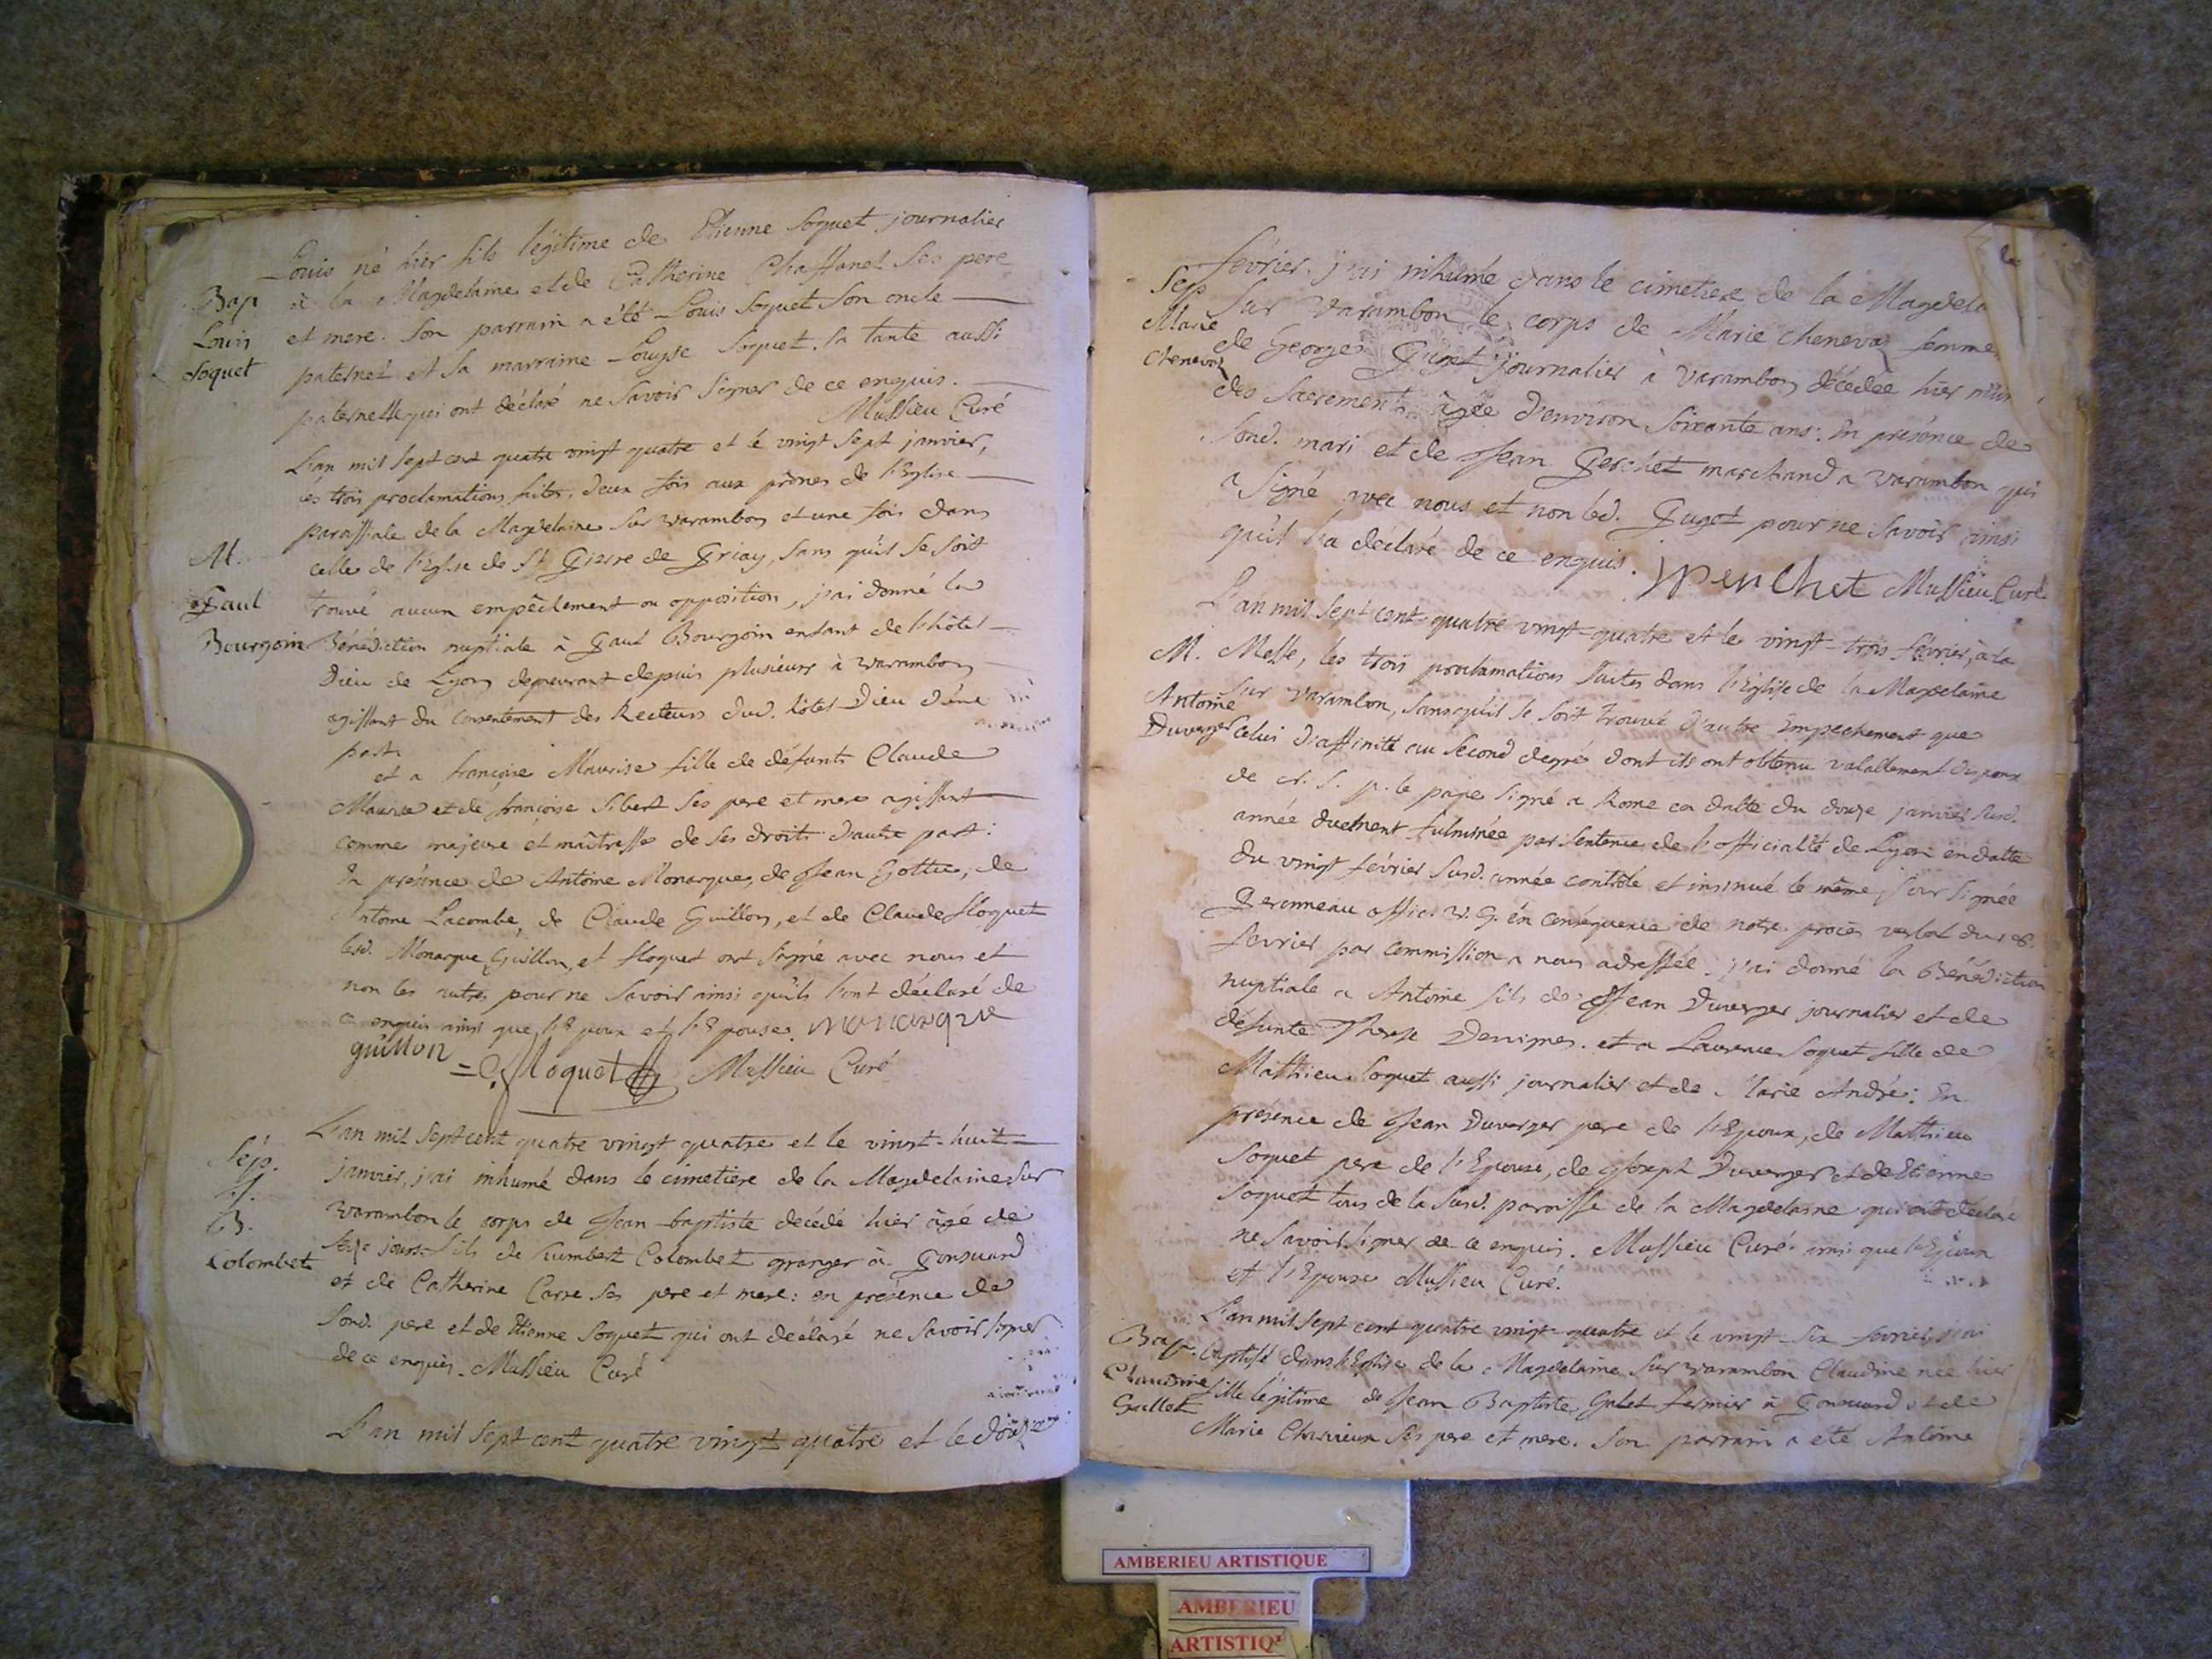 Louis né hier fils légitime de Etienne Soquet journalier
Bap
Louis
Soquet
à la Magdelaine et de Catherine Chaffanel ses pere
et mere. Son parrain a été Louis Soquet son oncle
paternel et sa marraine Louyse Soquet sa tante aussi
paternelle qui ont déclaré ne savoir signer de ce enquis.
Mussieu Curé
L'an mil sept cent quatre vingt quatre et le vingt sept janvier,
les trois proclamations faites, deux fois aux prônes de l'Eglise
paroissiale de la Magdelaine sur Varambon et une fois dans
M.
Paul
Bourgoin
celle de l'Eglise de St Pierre de Priay, sans qu'il se soit
trouvé aucun empêchement ou opposition, j'ai donné la
Bénédiction nuptiale à Paul Bourgoin enfant de l'hôtel
Dieu de Lyon demeurant depuis plusieurs à Varambon
agissant du consentement des Recteurs dud. hôtel Dieu d'une
part.
et a françoise Maurise fille de défunts Claude
Maurise et de françoise Sibert ses pere et mere agissant
comme majeure et maîtresse de ses droits d'autre part:
En présence de Antoine Monarque, de Jean Gottie, de
Antoine Lacombe, de Claude Guillon, et de Claude floquet
lesd. Monarque Guillon, et floquet ont signé avec nous et
non les autres pour ne savoir ainsi qu'ils l'ont déclaré de
ce enquis ainsi que l'Epoux et l'Epouse. monarque
guillon = C. floquet Mussieu Curé
L'an mil sept cent quatre vingt quatre et le vingt-huit
Sép.
J.
B.
Colombet
janvier, j'ai inhumé dans le cimetiere de la Magdelaine sur
Varambon le corps de Jean-baptiste décédé hier âgé de
seize jours fils de humbert Colombet granger à Gonsuard
et de Catherine Carre ses pere et mere: en présence de
sond. pere et de Etienne Soquet qui ont déclaré ne savoir signer
de ce enquis. Mussieu Curé
L'an mil sept cent quatre vingt quatre et le douze
Sep
Marie
Chenevaz
février. j'ai inhumé dans le cimetiere de la Magdela
sur Varambon le corps de Marie Chenevaz femme
de George Puget journalier à Varambon décedée hier mun
des sacrements âgée d'environ soixante ans: En présence de
sond. mari et de Jean Perchet marchand a Varambon qui
a signé avec nous et non led. Puget pour ne savoir ainsi
qu'il l'a déclaré de ce enquis. Mussieu Curé
L'an mil sept cent quatre vingt-quatre et le vingt-trois février, à la
M.
Antoine
Duverger
Messe, les trois proclamations faites dans l'Eglise de la Magdelaine
sur Varambon, sans qu'il se soit trouvé d'autre Empechement que
celui d'affinité au second degré dont ils ont obtenu valablement dispense
de N. S. p. le pape signé a Rome en datte du douze janvier susd.
année duement fulminée par sentence de l'officialité de Lyon en datte
du vingt février susd. année controlé et insinué le même jour signée
Peronneau offic. v. G. en conséquence de notre procès verbal du 18.
fevrier par commission a nous adressée. j'ai donné la Bénédiction
nuptiale a Antoine fils de Jean Duverger journalier et de
défunte Therese et a Laurence Soquet fille de
Mathieu Soquet aussi journalier et de Marie André: En
présence de Jean Duverger pere de l'Epoux, de Matthieu
Soquet pere de l'Epouse, de Joseph Duverger et de Etienne
Soquet tous de la susd. paroisse de la Magdelaine qui ont déclaré
ne savoir signer de ce enquis. Mussieu Curé. ainsi que l'Epoux
et l'Epouse Mussieu Curé.
L'an mil sept cent quatre vingt-quatre et le vingt-six fevrier, j'ai
Bap.
Claudine
Gallet
baptisé dans l'Eglise de la Magdelaine sur Varambon Claudine née hier
fille légitime de Jean Baptiste Galet fermier à Gonsuard et de
Marie ses pere et mere. Son parrain a été Antoine
AMBERIEU ARTISTIQUE
AMBERIEU
ARTISTIQ